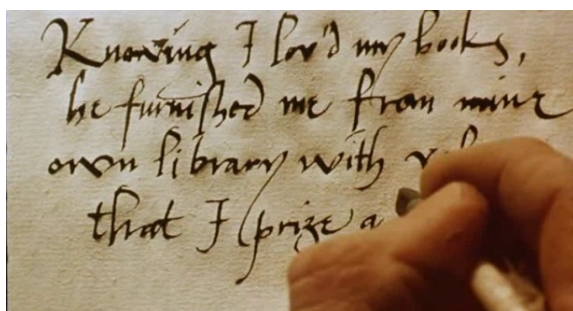 Knowing I lov'd my books,
he furnished me from mine
own library with
that I prize a